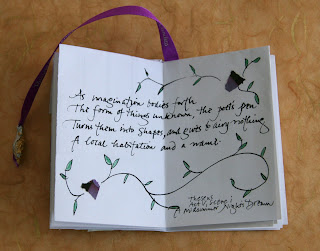 As imagination bodies forth
The form of things unknown, the poet's pen
Turns them into shapes, and gives to airy nothing
A local habitation and a name.
Theseus
Act V, Scene i
A Midsummer Night's Dream